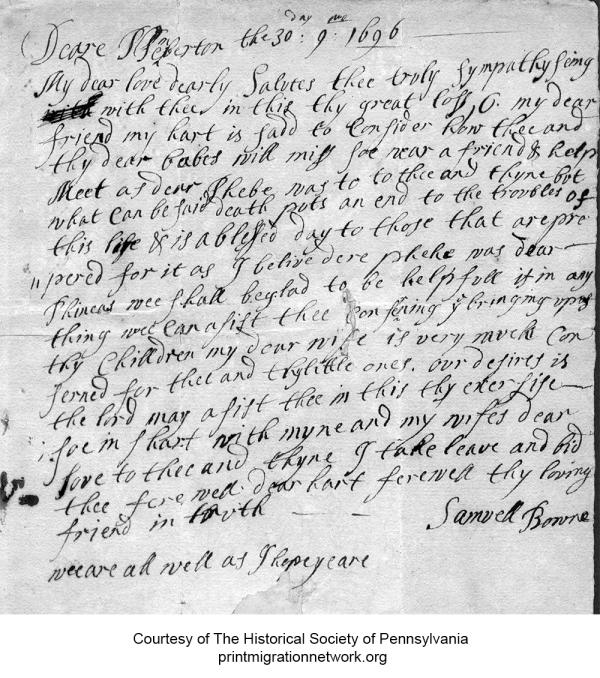 day mo
Deare P Pemberton the 30 : 9 : 1696
My dear love dearly Salutes thee truly Sympathyseing
with thee in this thy great loss, O. my dear
friend my hart is sadd to Consider how thee and
thy dear babes will miss soe near a friend & help
Meet as dear Phebe was to to thee and thyne but
what can be said death puts an end to the troubles of
this life & is a blessed day to those that are pre
"pered for it as I belive dere phebe was dear
Phineas wee shall be glad to be helpfull if in any
thing wee Can asist thee Conserning ye bringing up of
thy Children my dear wife is very much Con
serned for thee and thy litle ones. our desires is
the lord may asist thee in this thy exersise
soe in short with myne and my wifes dear
love to thee and thyne I take leave and bid
thee ferewell dear hart ferewell thy loving
friend in truth
Samuell Bowne
wee are all well as I hope ye are
Courtesy of The Historical Society of Pennsylvania
printmigrationnetwork.org